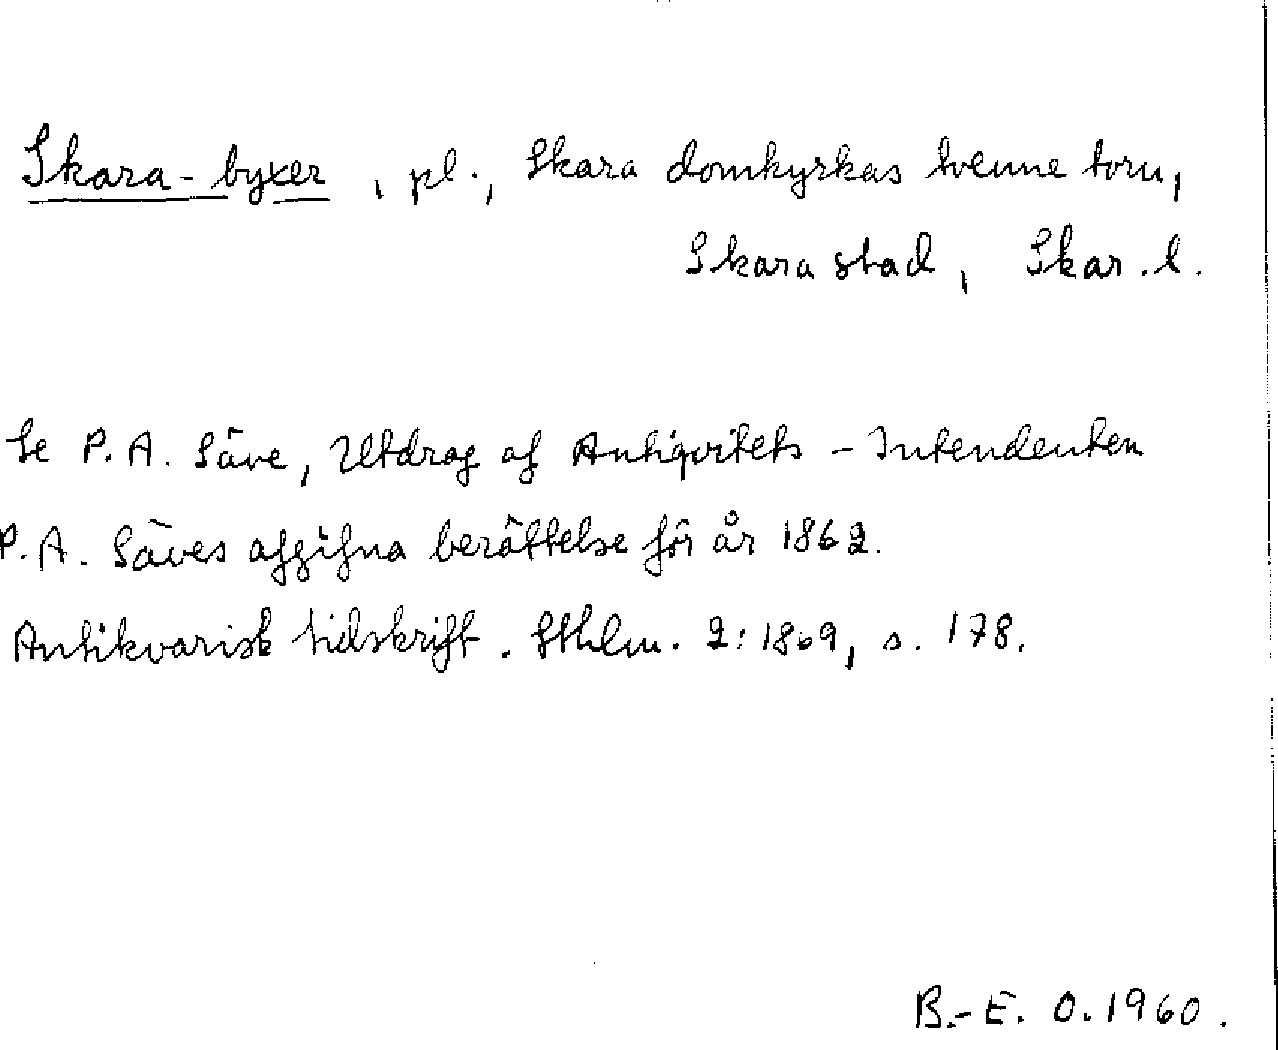 Skara-byxer, pl., Skara domkyrkas tvenne torn,
Skara stad, Skar.l.
Se P. A. Säve, Utdrag af Antiqvitets-Intendenten
P. A. Säves afgifna berättelse för år 1862.
Antikvarisk tidskrift. Sthlm. 2:1869, s. 178.
B.-E. O. 1960.